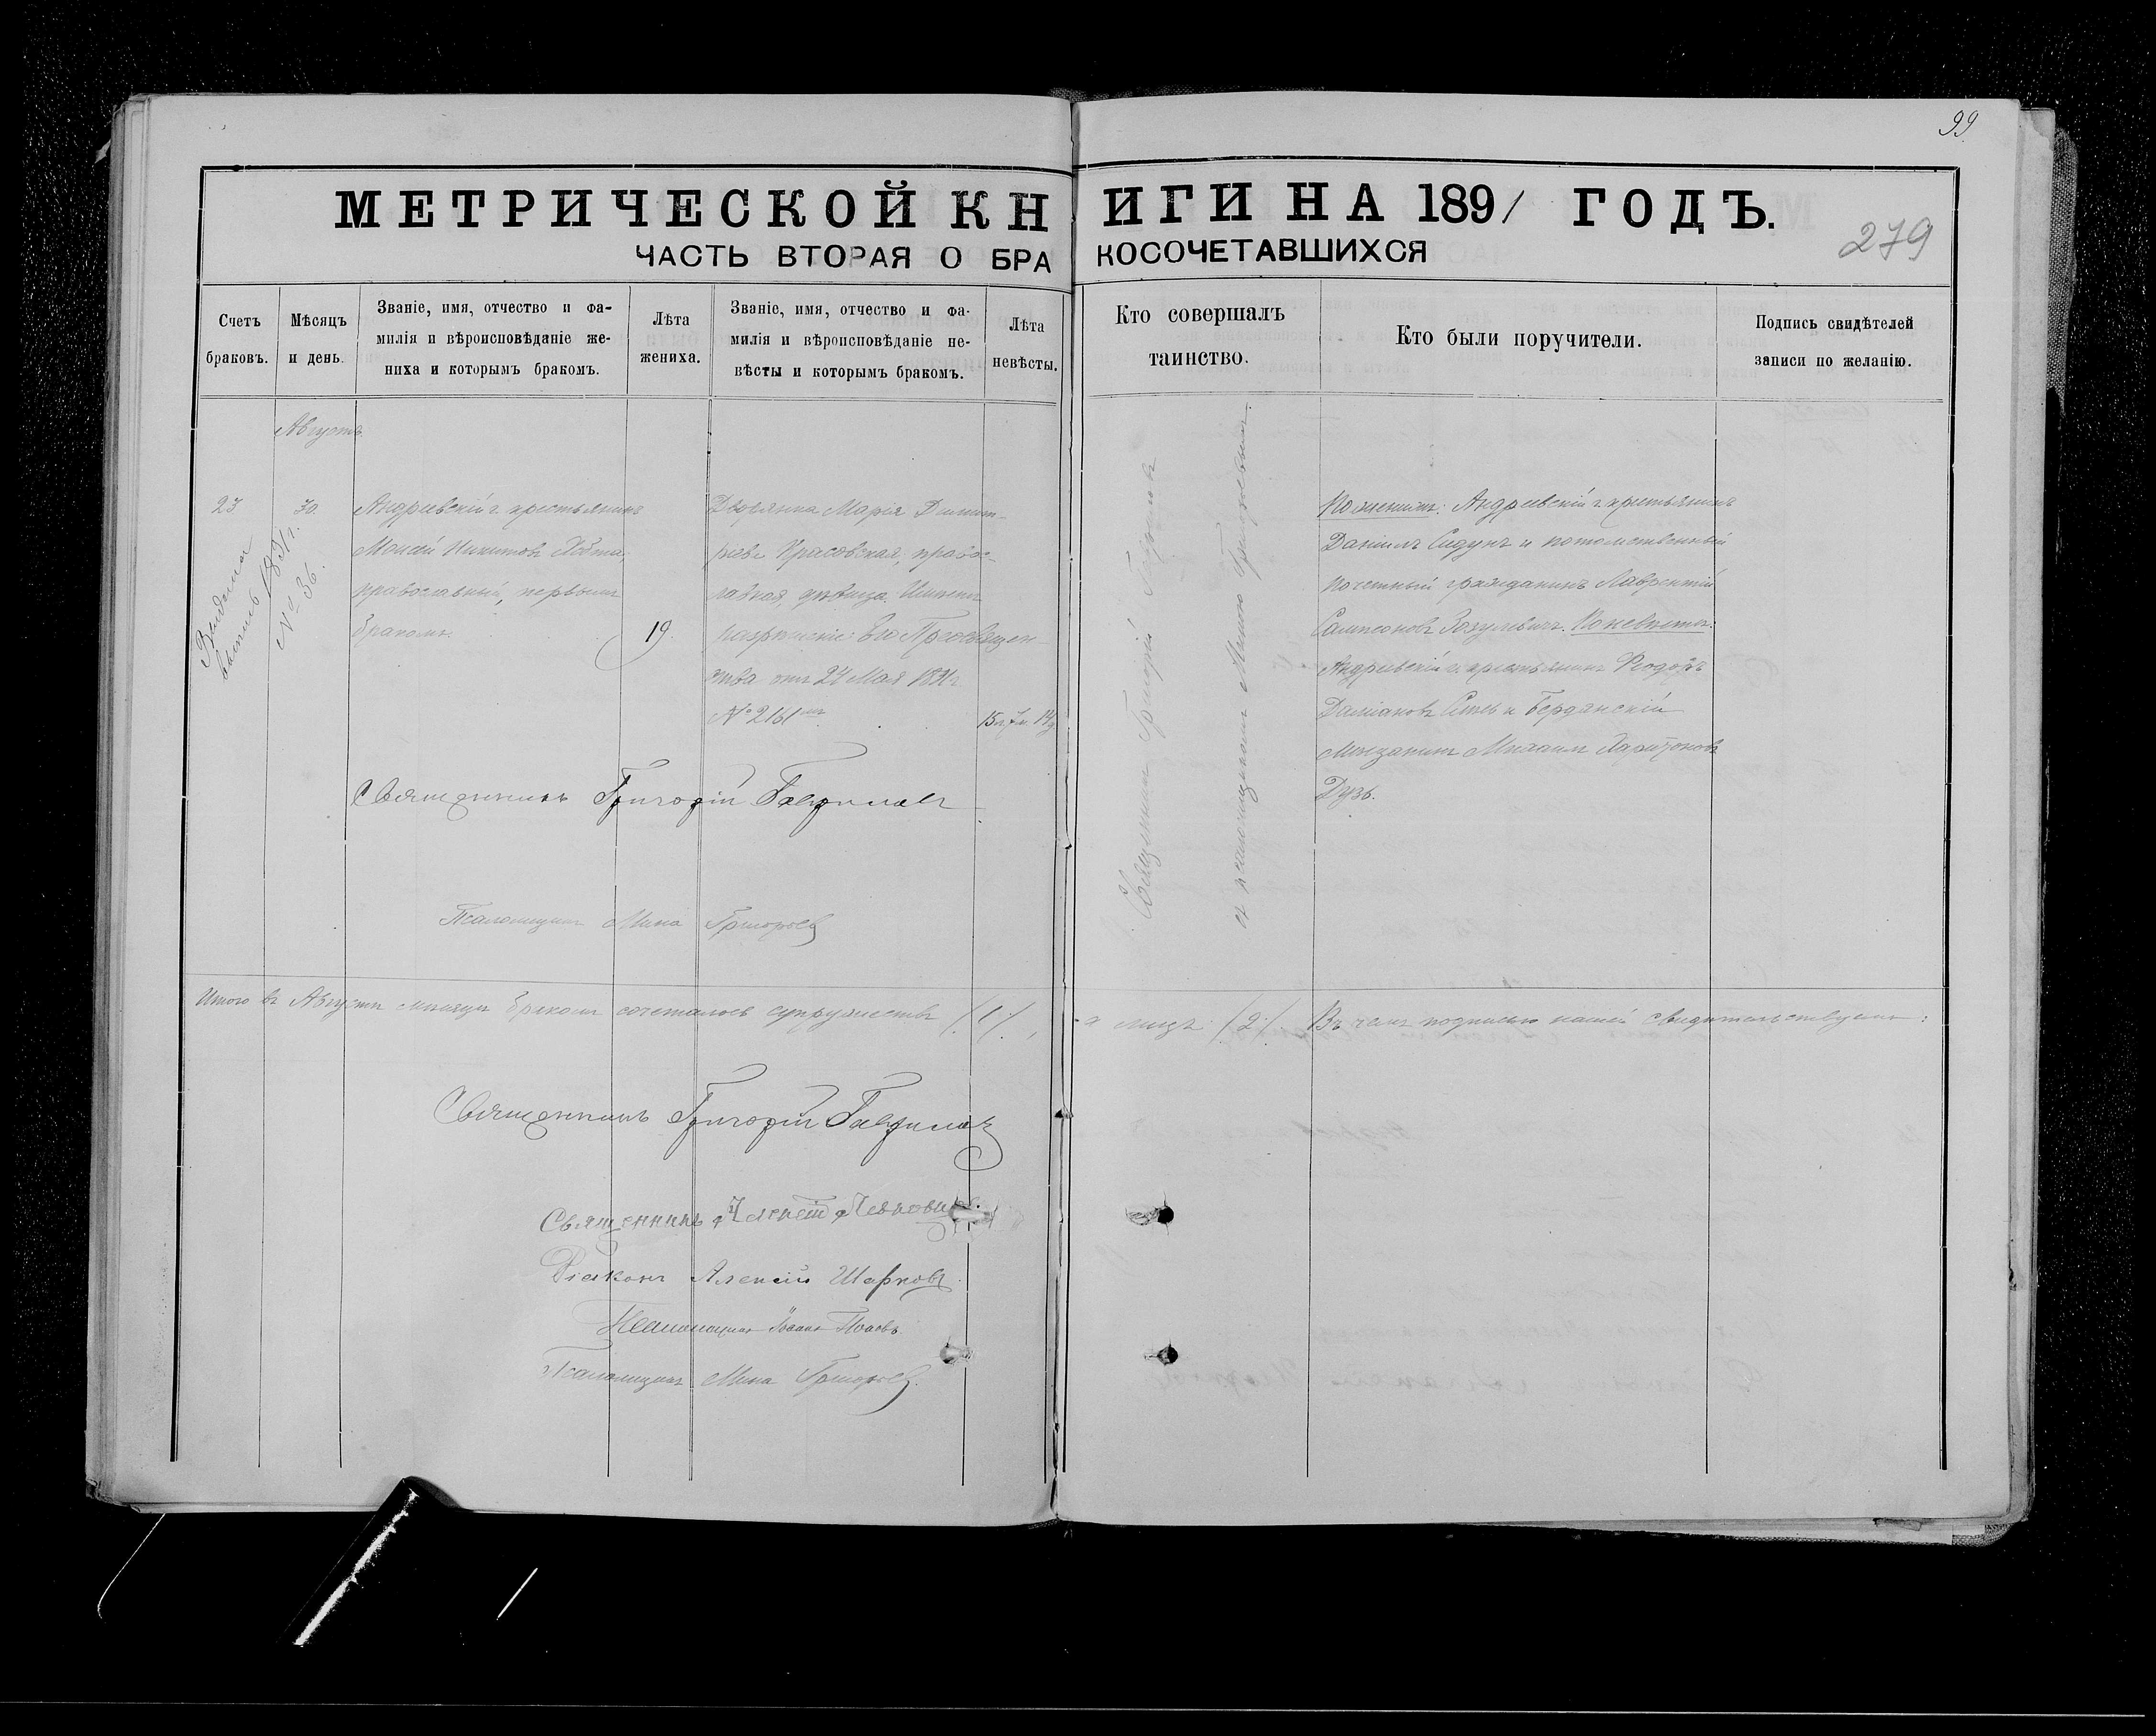 99
МЕТРИЧЕСКОЙ КНИГИ НА 1891 ГОДЪ.
279
ЧАСТЬ ВТОРАЯ О БРАКОСОЧЕТАВШИХСЯ
Счетъ браковъ.
Мѣсяцъ и день.
Званіе, имя, отчество и фа-
милія и вѣроисповѣданіе же-
ниха и которымъ бракомъ.
Лѣта жениха.
Званіе, имя, отчество и фа-
милія и вѣроисповѣданіе не-
вѣсты и которымъ бракомъ.
Лѣта невѣсты.
Кто совершалъ таинство.
Кто были поручители.
Подпись свидѣтелей
записи по желанію.
Августъ
23
30
Выдана
1891 г.
№ 36.
Андреевскій крестьянинъ
Моисей Никитовъ
православный, первымъ
бракомъ.
19.
Дворянка Марія Димит-
рова Красовская, правос-
лавная, дѣвица. Имѣетъ
разрѣшеніе Его Преосвящен-
ства отъ 24 Мая 1891 г.
№ 2161
Священникъ Григорій Гавриловъ
съ псаломщикомъ Миною Григорьевымъ.
По женихѣ: Андреевскій крестьянинъ
Даніилъ Сидунъ и потомственный
почетный гражданинъ Лаврентій
Сампсоновъ Зозулевичъ. По невѣстѣ:
Андреевскій крестьянинъ Ѳеодоръ
Даміановъ и Бердянскій
мѣщанинъ Михаилъ Харитоновъ
Дузь.
Священникъ Григорій Гавриловъ
Псаломщикъ Мина Григорьевъ
Итого въ Августѣ мѣсяцѣ бракомъ сочеталось супружествъ /1/, а лицъ /2/. Въ чемъ подписью нашей свидѣтельствуемъ:
Священникъ Григорій Гавриловъ
Священникъ Алексій
Діаконъ Алексій Шарковъ
Псаломщикъ Іоаннъ Поповъ
Псаломщикъ Мина Григорьевъ.